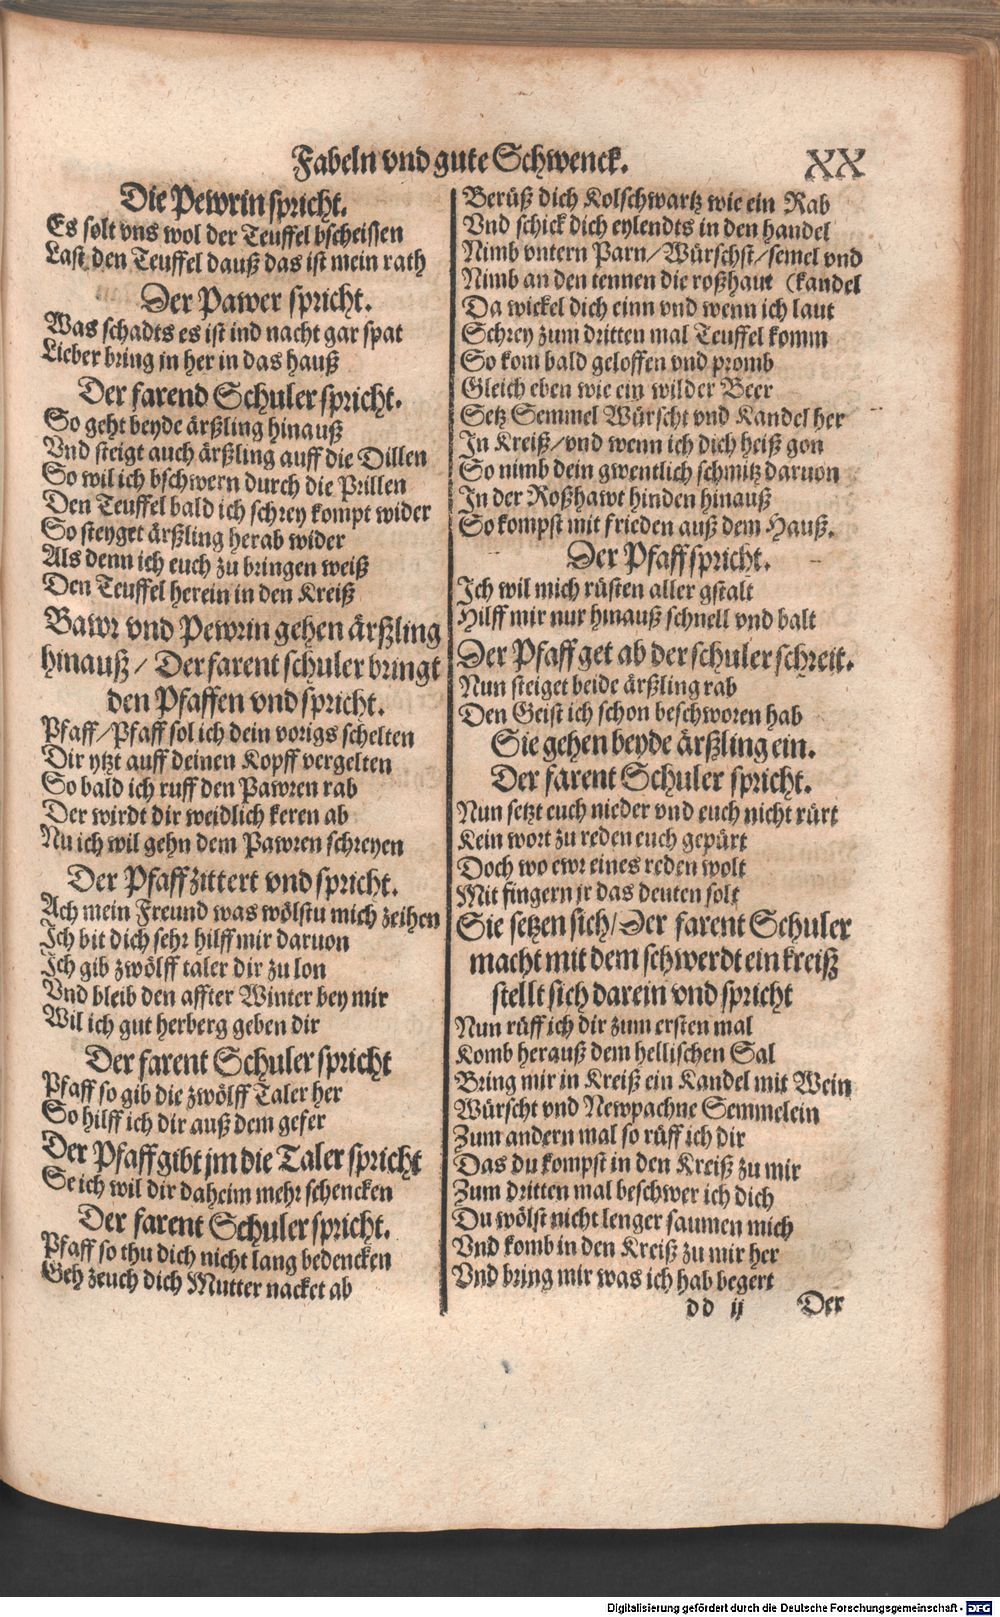 Fabeln vnd gute Schwenck. XX
Die Pewrin spricht.
Es solt vns wol der Teuffel bscheissen
Last den Teuffel dauß das ist mein rath
Der Pawer spricht.
Was schadts es ist ind nacht gar spat
Lieber bring jn her in das hauß
Der farend Schuler spricht.
So geht beyde ärßling hinauß
Vnd steigt auch ärßling auff die Dillen
So wil ich bschwern durch die Prillen
Den Teuffel bald ich schrey kompt wider
So steyget ärßling herab wider
Als denn ich euch zu bringen weiß
Den Teuffel herein in den Kreiß
Bawr vnd Pewrin gehen ärßling
hinauß / Der farent schuler bringt
den Pfaffen vnd spricht.
Pfaff/Pfaff sol ich dein vorigs schelten
Dir ytzt auff deinen Kopff vergelten
So bald ich ruff den Pawren rab
Der wirdt dir weidlich keren ab
Nu ich wil gehn dem Pawren schreyen
Der Pfaff zittert vnd spricht.
Ach mein Freund was wölstu mich zeihen
Ich bit dich sehr hilff mir daruon
Ich gib zwölff taler dir zu lon
Vnd bleib den affter Winter bey mir
Wil ich gut herberg geben dir
Der farent Schuler spricht
Pfaff so gib die zwölff Taler her
So hilff ich dir auß dem gefer
Der Pfaff gibt jm die Taler spricht
Se ich wil dir daheim mehr schencken
Der farent Schuler spricht.
Pfaff so thu dich nicht lang bedencken
Geh zeuch dich Mutter nacket ab
Berüß dich Kolschwartz wie ein Rab
Vnd schick dich eylendts in den handel
Nimb vntern Parn/Würschst/semel vnd
Nimb an den tennen die roßhaut (kandel
Da wickel dich einn vnd wenn ich laut
Schrey zum dritten mal Teuffel komm
So kom bald geloffen vnd promb
Gleich eben wie ein wilder Beer
Setz Semmel Würscht vnd Kandel her
In Kreiß/vnd wenn ich dich heiß gon
So nimb dein gwentlich schmitz daruon
In der Roßhawt hinden hinauß
So kompst mit frieden auß dem Hauß.
Der Pfaff spricht.
Ich wil mich rüsten aller gstalt
Hilff mir nur hinauß schnell vnd balt
Der Pfaff get ab der schuler schreit.
Nun steiget beide ärßling rab
Den Geist ich schon beschworen hab
Sie gehen beyde ärßling ein.
Der farent Schuler spricht.
Nun setzt euch nieder vnd euch nicht rürt
Kein wort zu reden euch gepürt
Doch wo ewr eines reden wolt
Mit fingern jr das deuten solt
Sie setzen sich/Der farent Schuler
macht mit dem schwerdt ein kreiß
stellt sich darein vnd spricht
Nun rüff ich dir zum ersten mal
Komb herauß dem hellischen Sal
Bring mir in Kreiß ein Kandel mit Wein
Würscht vnd Newpachne Semmelein
Zum andern mal so rüff ich dir
Das du kompst in den Kreiß zu mir
Zum dritten mal beschwer ich dich
Du wölst nicht lenger saumen mich
Vnd komb in den Kreiß zu mir her
Vnd bring mir was ich hab begert
dd ij Der
Digitalisierung gefördert durch die Deutsche Forschungsgemeinschaft - DFG